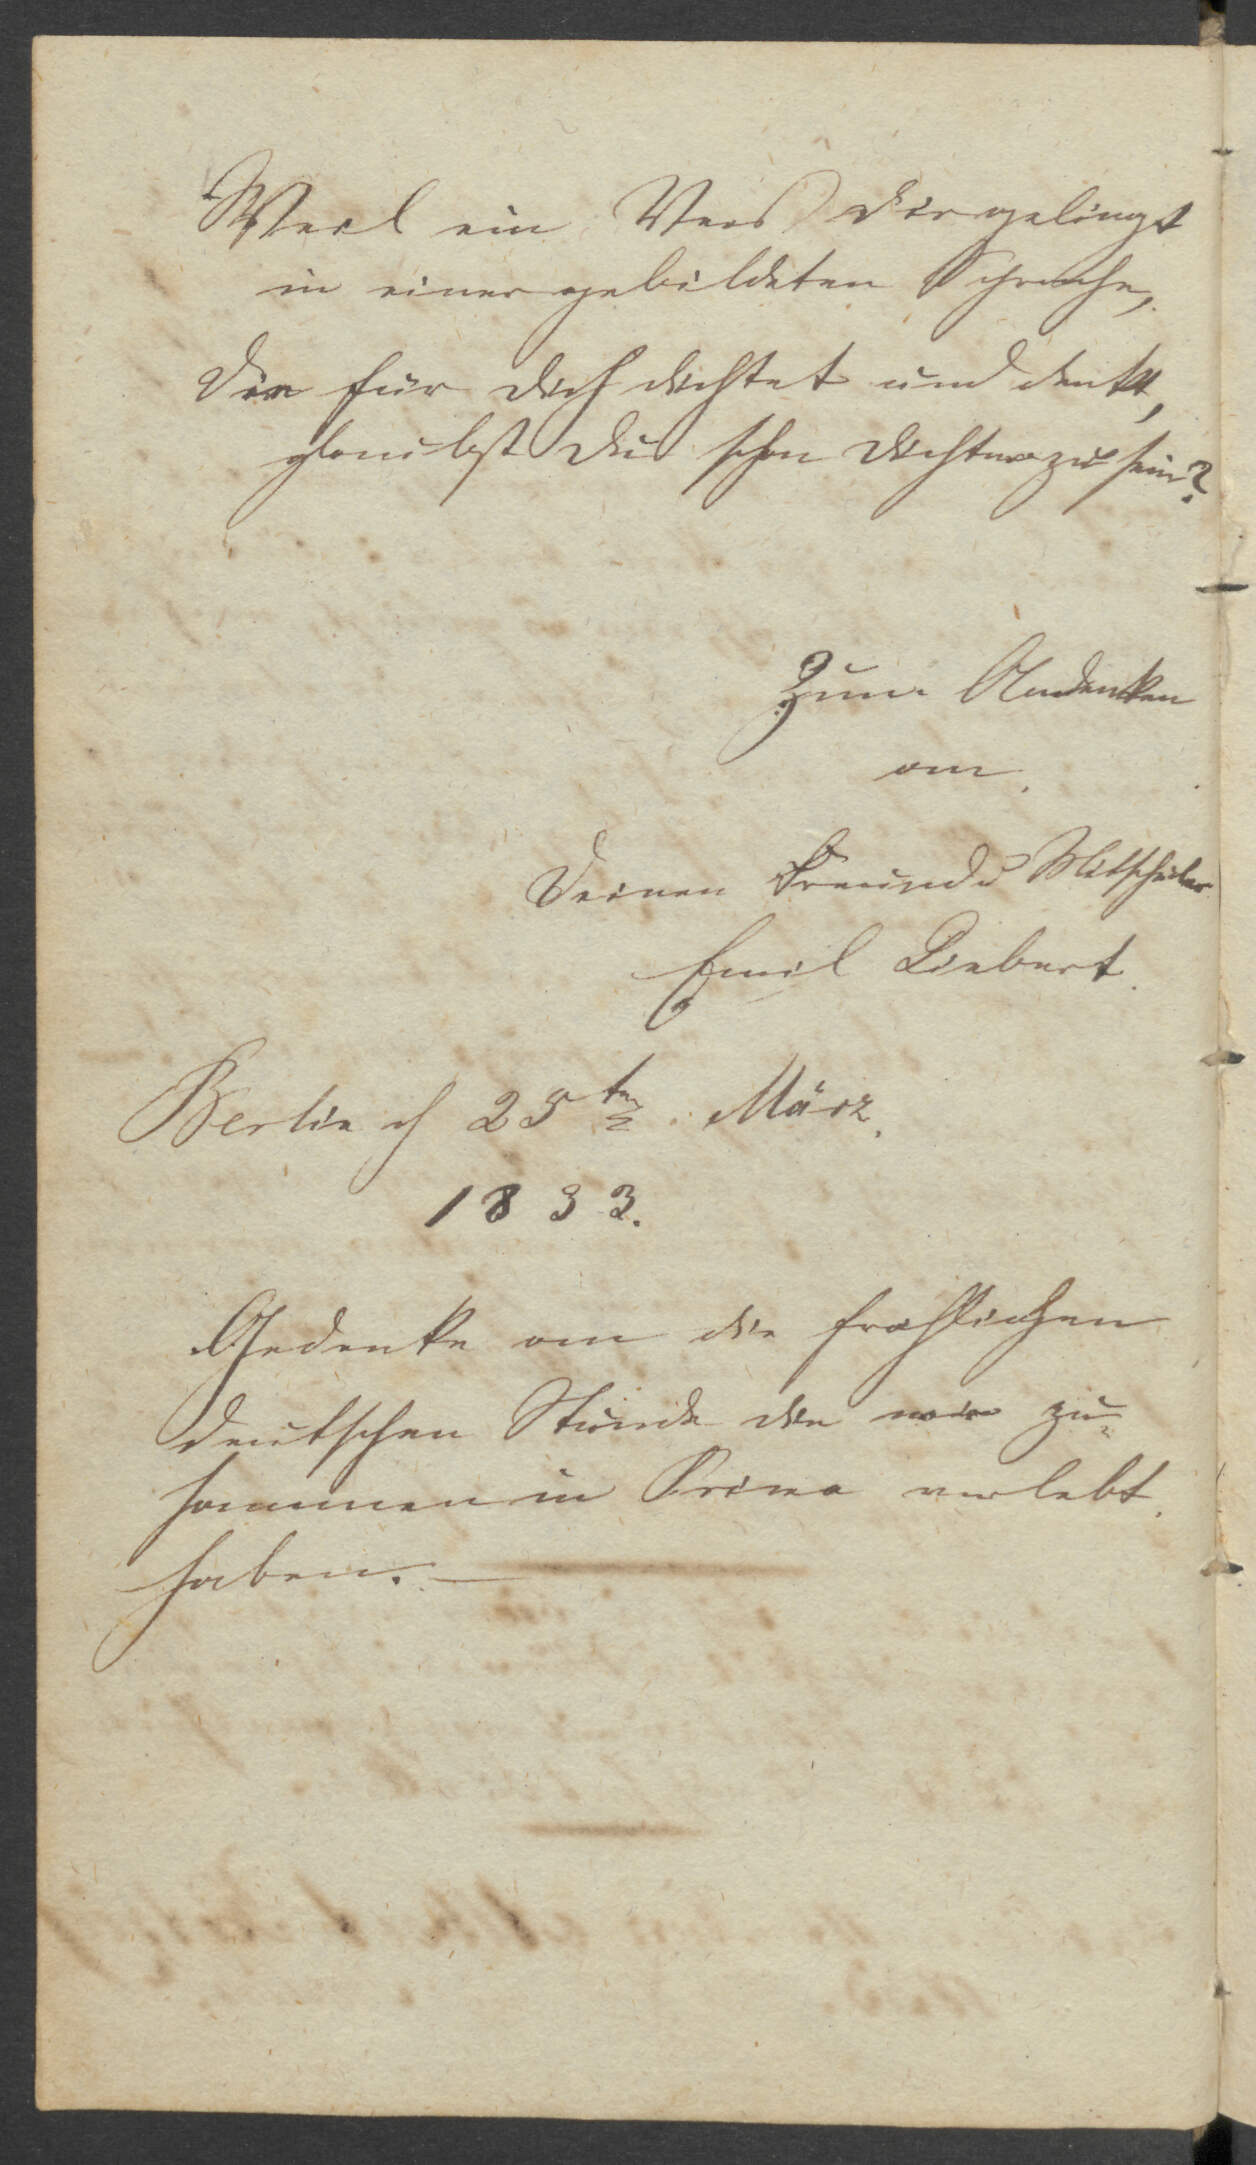 Weil ein Vers dir gelingt
in einer gebildeten Sprache,
Die für dich dichtet und denkt,
glaubst du schon Dichter zu sein?
Zum Andenken
an
Deinen Freund u Mitschüler
Emil Liebert.
Berlin d 25ten März.
1833.
Gedenke an die fröhlichen
deutschen Stunde die wir zu-
sammen in Prima verlebt
haben. —